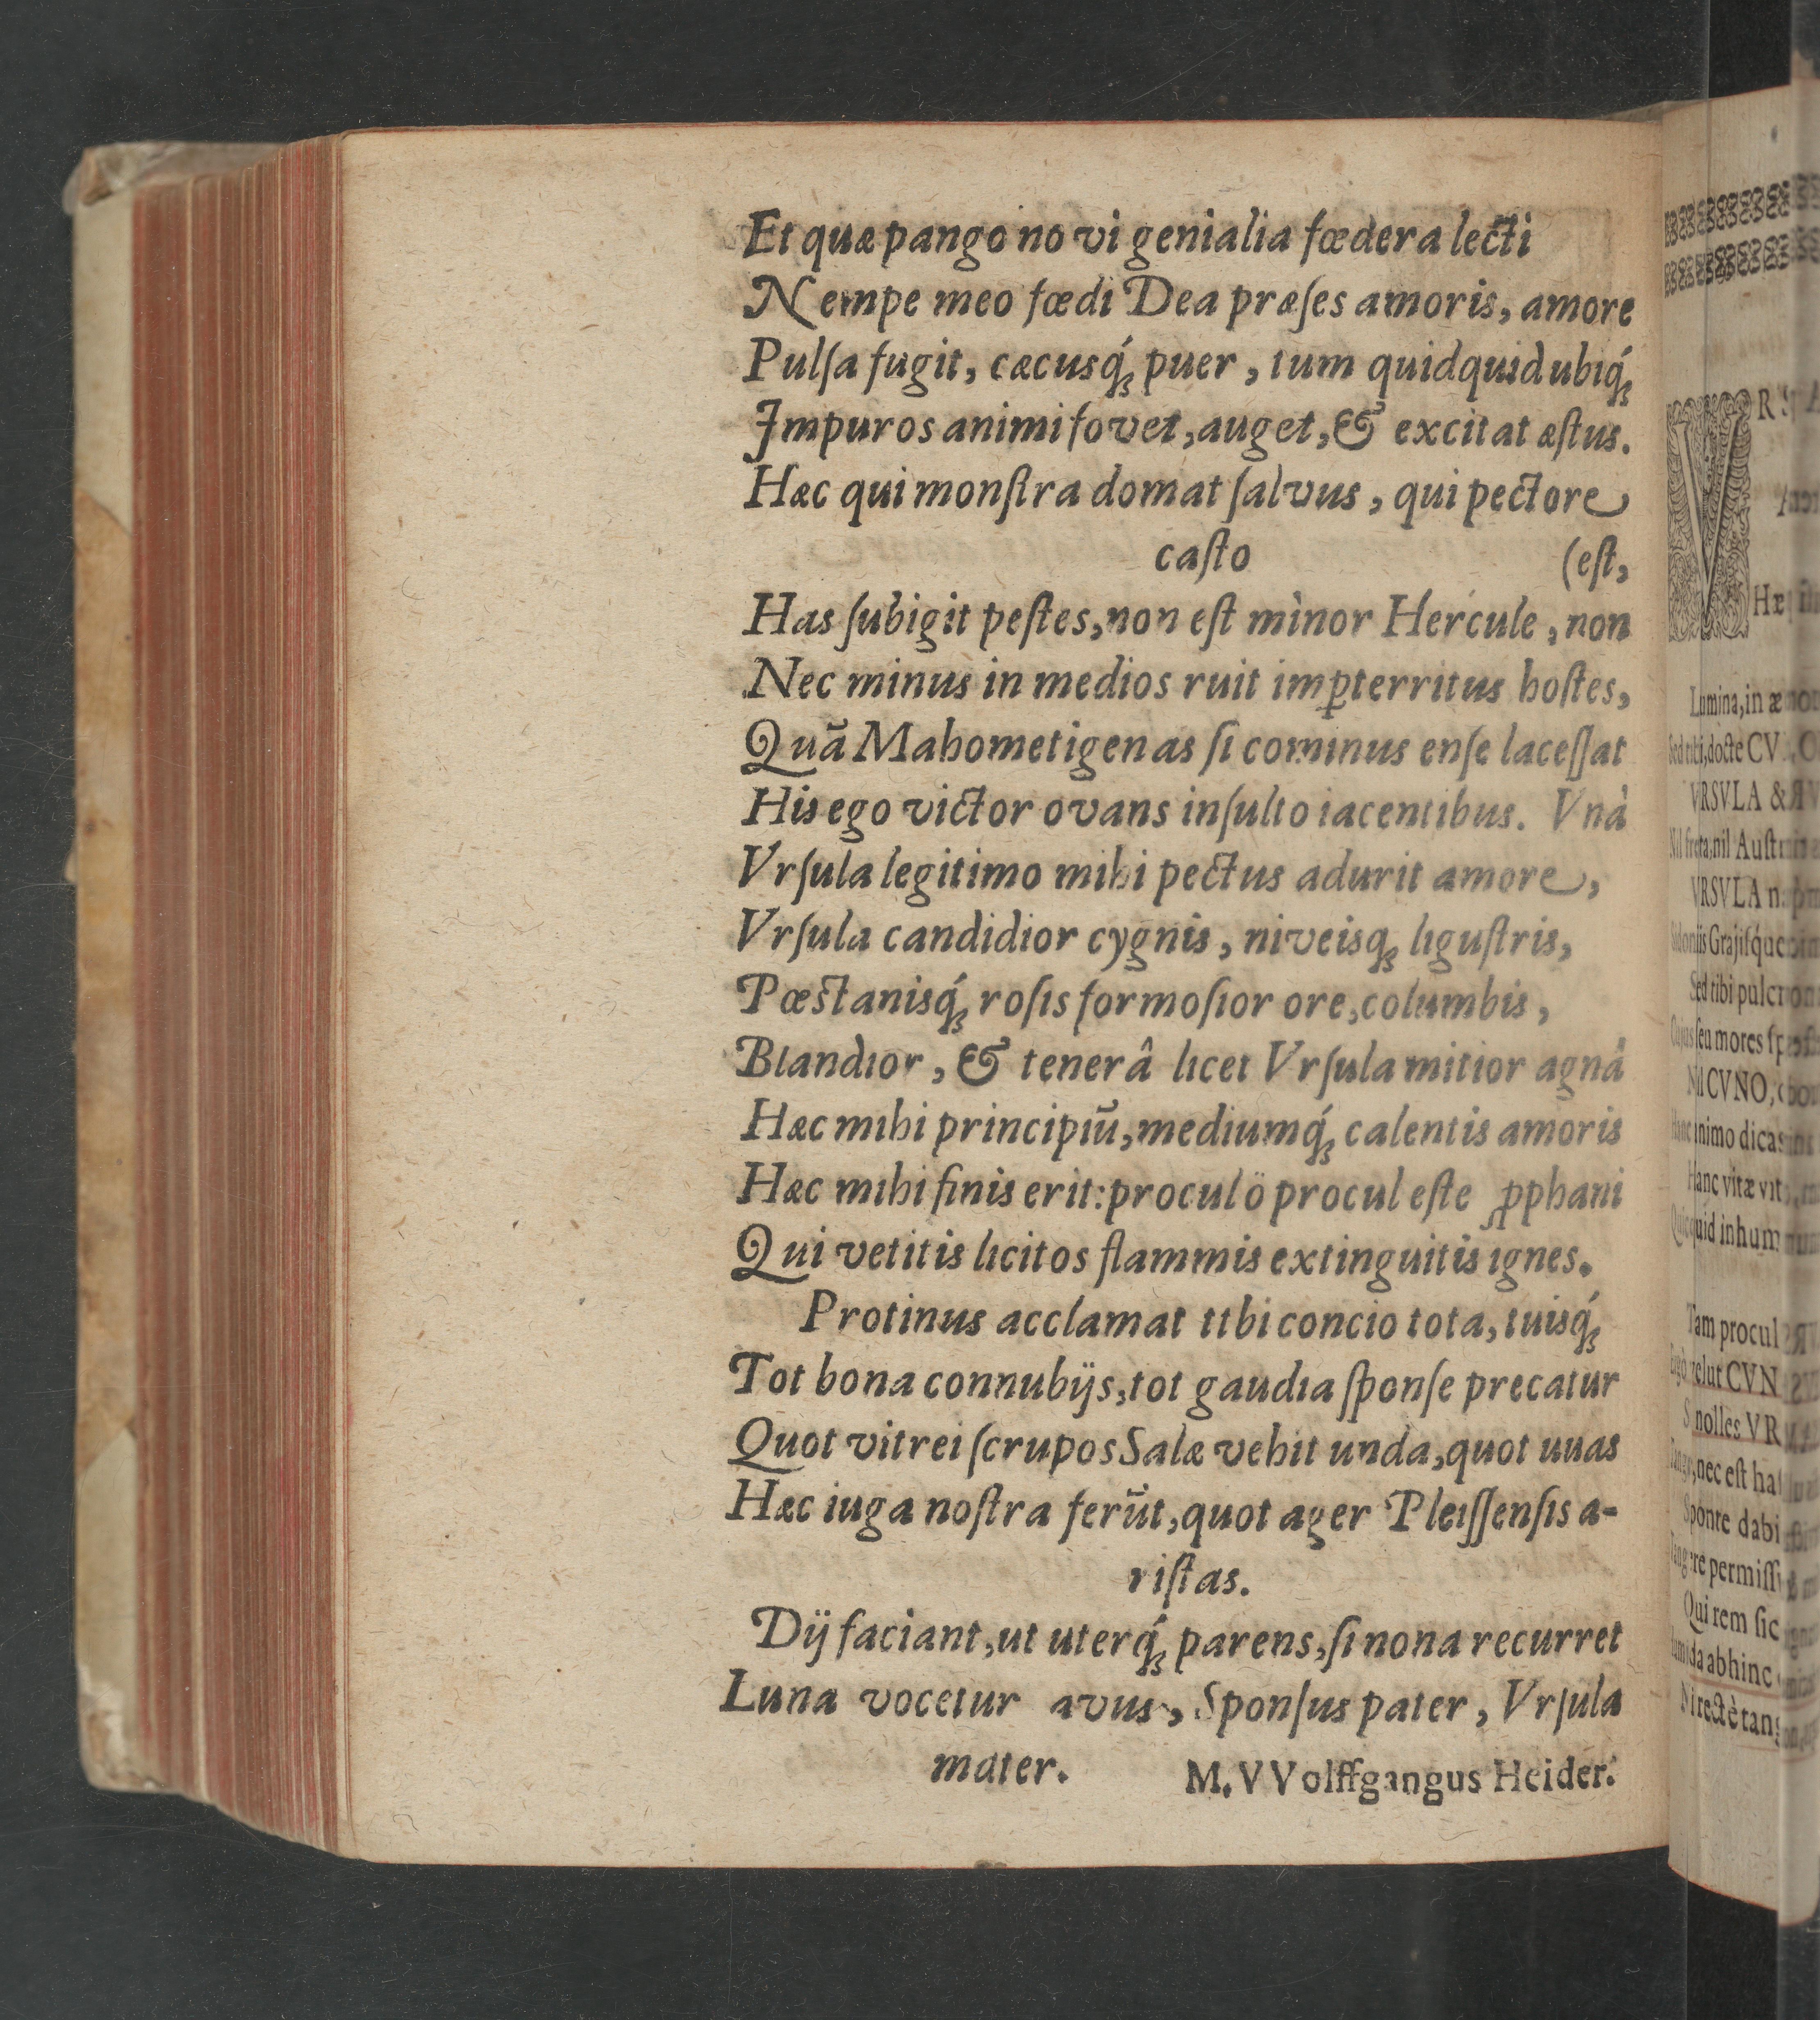 Et quæ pango novi genialia fœdera lecti
Nempe meo fœdi Dea præſes amoris, amore
Pulſa fugit, cæcusq́; puer, tum quidquid ubiq́;
Impuros animi fovet, auget, & excitat æſtus.
Hæc qui monſtra domat ſalvus, qui pectore
caſto (eſt,
Has ſubigit peſtes, non eſt mìnor Hercule, non
Nec minus in medios ruit imꝑterritus hoſtes,
Quā Mahometigenas ſi cominus enſe laceſſat
His ego victor ovans inſulto iacentibus. Vnà
Vrſula legitimo mihi pectus adurit amore,
Vrſula candidior cygnis, niveisq; liguſtris,
Pœstanisq́; roſis formoſior ore, columbis,
Blandior, & tenerâ licet Vrſula mitior agnâ
Hæc mihi principiū, mediumq́; calentis amoris
Hæc mihi finis erit: procul ö procul eſte ꝓphani
Qui vetitis licitos flammis extinguitis ignes.
Protinus acclamat ttbi concio tota, tuisq́;
Tot bona connubijs, tot gaudia ſponſe precatur
Quot vitrei ſcrupos Salæ vehit unda, quot uuas
Hæc iuga noſtra ferūt, quot ager Pleiſſenſis a-
riſtas.
Dij faciant, ut uterq́; parens, ſi nona recurret
Luna vocetur avus, Sponſus pater, Vrſula
mater. M. VVolffgangus Heider.
VRS
Hæ
Lumina, in æ
Sed tibi, docte CV
VRSVLA &
Nil freta, nil Auſt
VRSVLA n
Sed tibi pulc
ſeu mores ſp
Nil CVNO,
inimo dicas
Hanc vitæ vit
Quicquid inhum
Tam procul
velut CVN
nolles VR
nec eſt ha
Sponte dabi
permiſſ
Qui rem ſic
abhinc
Ni rectè tang